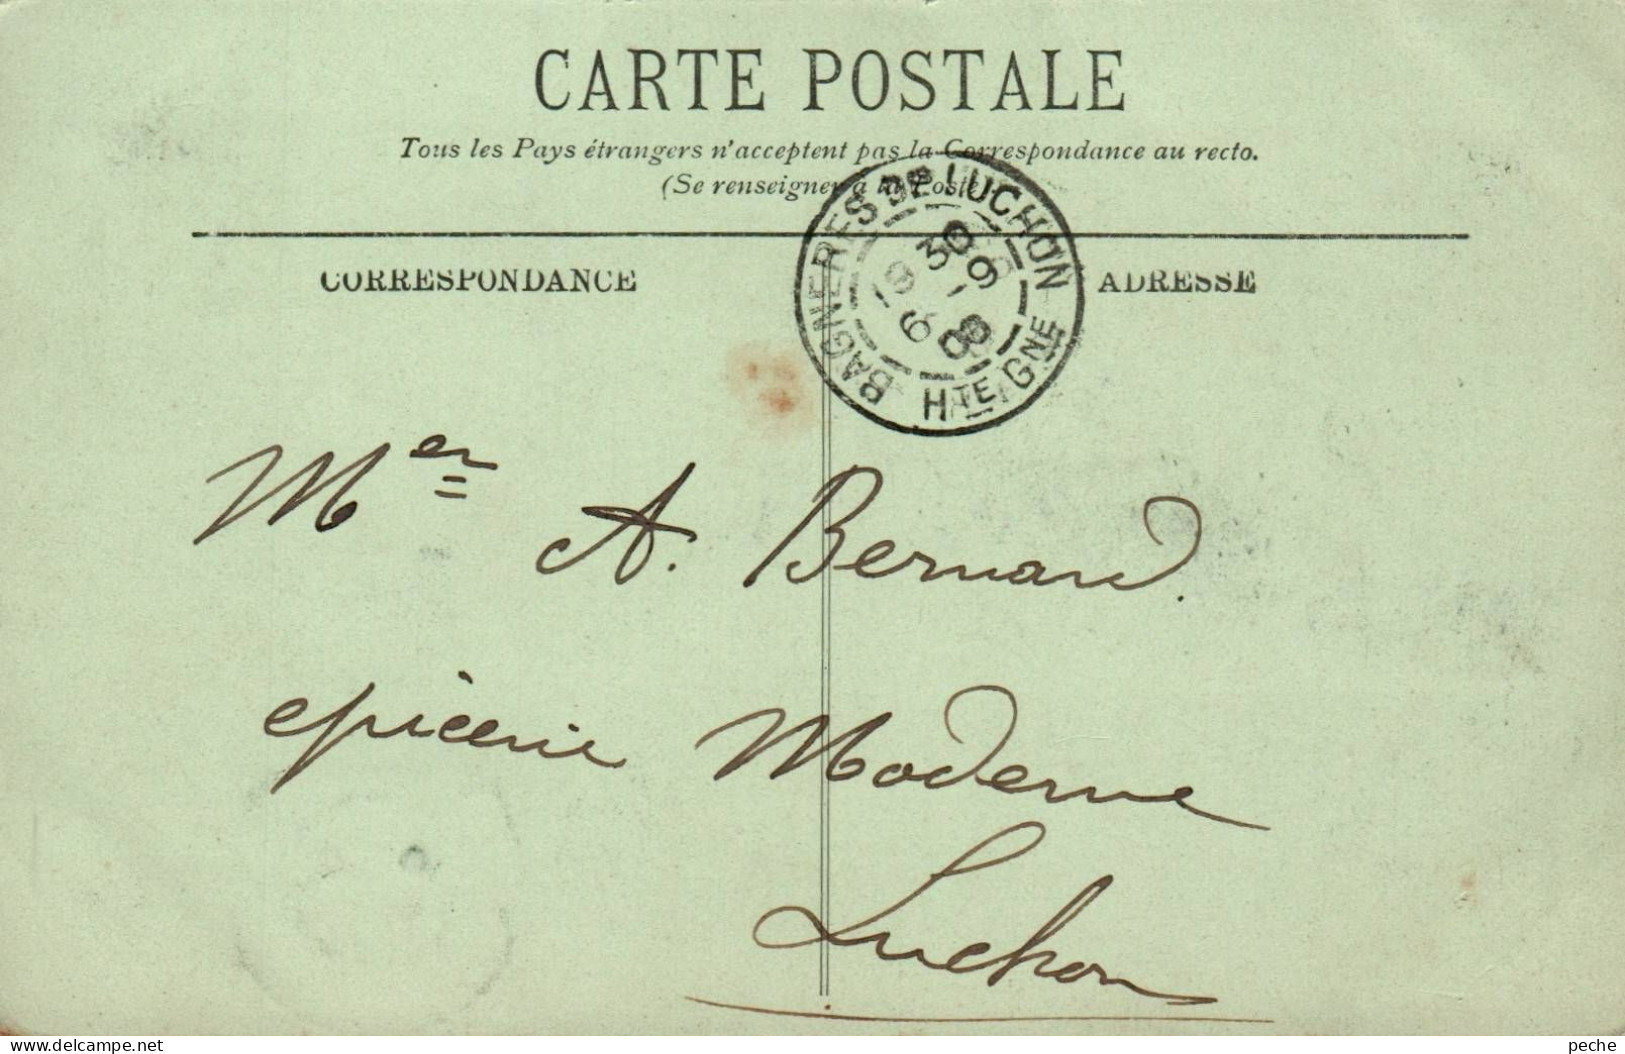 CARTE POSTALE
Tous les Pays étrangers n'acceptent pas la Correspondance au recto.
(Se renseigner à la Poste).
BAGNERES DE LUCHON
30
9
08
HTE GNE
CORRESPONDANCE
ADRESSE
Mer A. Bernard.
epicerie Moderne
Luchon
delcampe.net
peche